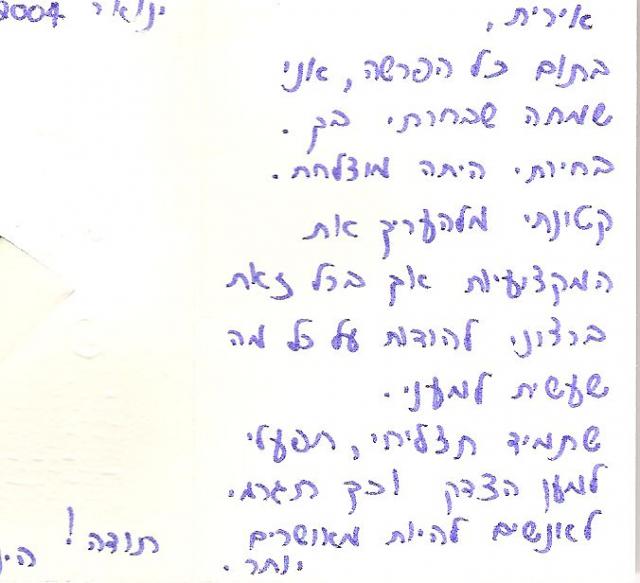 ינואר 2004
אירית,
בתום כל הפרשה, אני
שמחה שבחרתי בך.
בחירתי היתה מוצלחת.
קטונתי מלהעריך את
המקצועיות אך בכל זאת
ברצוני להודות על כל מה
שעשית למעני.
שתמיד תצליחי, תפעלי
למען הצדק וכך תגרמי
לאנשים להיות מאושרים
יותר.
תודה!